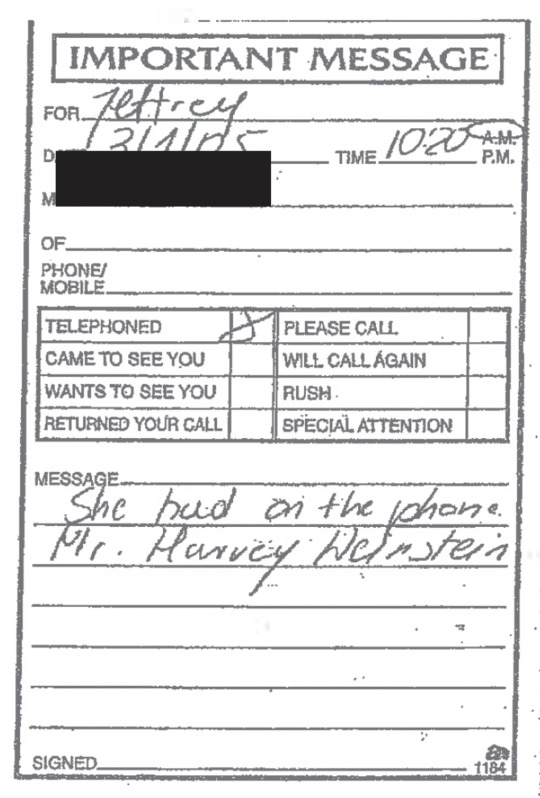 IMPORTANT MESSAGE
FOR Jeffrey
D 3/1/05 TIME 10:20 A.M.
P.M.
M
OF
PHONE/
MOBILE
TELEPHONED PLEASE CALL
CAME TO SEE YOU WILL CALL AGAIN
WANTS TO SEE YOU RUSH
RETURNED YOUR CALL SPECIAL ATTENTION
MESSAGE
She had on the phone.
Mr. Harvey Weinstein
SIGNED
1184